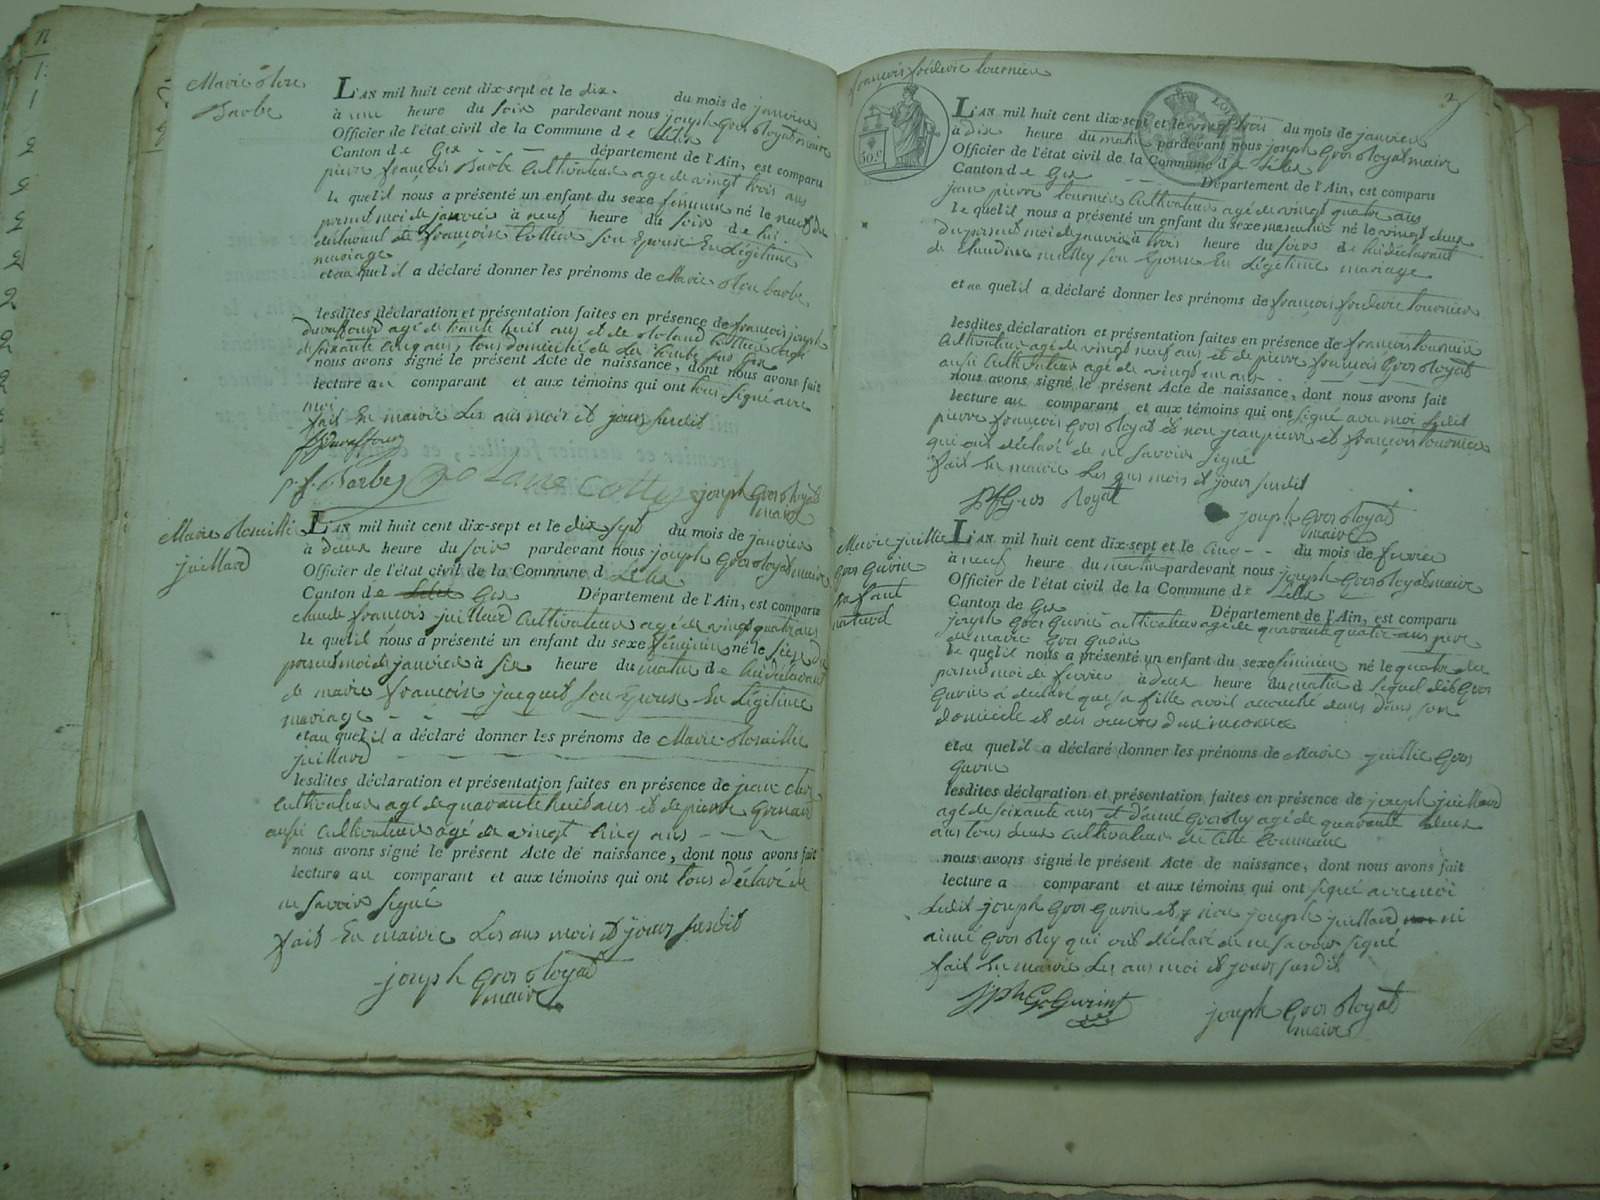 Marie
Barbe
L'AN mil huit cent dix-sept et le dix du mois de janvier
à une heure du soir pardevant nous joseph Gros Royat maire
Officier de l'état civil de la Commune de Lelex
Canton de Gex département de l'Ain, est comparu
pierre françois Barbe Cultivateur agé de vingt trois ans
le quel il nous a présenté un enfant du sexe féminin né le neuf du
présent moi de janvier à neuf heure du soir de lui
déclarant et de françoise Cottier son Epouse En Légitime
mariage
et au quel il a déclaré donner les prénoms de Marie Barbe
lesdites déclaration et présentation faites en présence de françois joseph
Duraffourd agé de trente huit ans et de Roland Cottier agé
de soixante Cinq ans, tous domicilié de
nous avons signé le présent Acte de naissance, dont nous avons fait
lecture au comparant et aux témoins qui ont tous signé avec
moi
fait En mairie Les ans mois et jours susdit
Duraffourg
p. f. Barbe Roland Cottier joseph Gros Royat
maire
Marie Rosaillie
juillard
L'AN mil huit cent dix-sept et le dix sept du mois de janvier
à deux heure du soir pardevant nous joseph Gros Royat maire
Officier de l'état civil de la Commune d Lelex
Canton de Gex Département de l'Ain, est comparu
claude françois juillard Cultivateur agé de vingt quatre ans
le quel il nous a présenté un enfant du sexe féminin né le seize du
présent moi de janvier à six heure du matin de lui déclarant
de marie françoise jacquet son Epouse En Légitime
mariage
et au quel il a déclaré donner les prénoms de Marie Rosaillie
juillard
lesdites déclaration et présentation faites en présence de jean
Cultivateur agé de quarante huit ans et de pierre Grenard
aussi Cultivateur agé de vingt Cinq ans
nous avons signé le présent Acte de naissance, dont nous avons fait
lecture au comparant et aux témoins qui ont tous déclaré de
ne savoir signé
fait En mairie Les ans mois et jours susdit
joseph Gros Royat
maire
françois frederic tournier
50 C
L'AN mil huit cent dix-sept et le vingt trois du mois de janvier
à dix heure du matin pardevant nous joseph Gros Royat maire
Officier de l'état civil de la Commune de Lelex
Canton de Gex Département de l'Ain, est comparu
jean pierre tournier Cultivateur agé de vingt quatre ans
le quel il nous a présenté un enfant du sexe masculin né le vingt deux
du présent moi de janvier à trois heure du soir de lui déclarant
de Claudine mathey son Epouse En Légitime mariage
et au quel il a déclaré donner les prénoms de françois frederic tournier
lesdites déclaration et présentation faites en présence de françois tournier
Cultivateur agé de vingt neuf ans et de pierre françois Gros Royat
aussi Cultivateur agé de vingt un ans
nous avons signé le présent Acte de naissance, dont nous avons fait
lecture au comparant et aux témoins qui ont signé avec moi Ledit
pierre françois Gros Royat et non jean pierre et françois tournier
qui ont déclaré de ne savoir signé
fait En mairie Les ans mois et jours susdit
PfGros Royat
joseph Gros Royat
maire
Marie juillie
Gros Gurin
enfant
naturel
L'AN mil huit cent dix-sept et le Cinq du mois de fevrier
à neuf heure du matin pardevant nous joseph Gros Royat maire
Officier de l'état civil de la Commune de Lelex
Canton de Gex Département de l'Ain, est comparu
joseph Gros Gurin cultivateur agé de quarante quatre ans père
de marie Gros Gurin
le quel il nous a présenté un enfant du sexe féminin né le quatre du
présent moi de fevrier à deux heure du matin d lequel dit Gros
Gurin a déclaré que sa fille avoit accouché dans dans son
domicile et des oeuvres d'un inconnue
et au quel il a déclaré donner les prénoms de Marie juillie Gros
Gurin
lesdites déclaration et présentation faites en présence de joseph juillard
agé de soixante ans et d'aimé Gros Rey agé de quarante deux
ans tous deux Cultivateur de cette Commune
nous avons signé le présent Acte de naissance, dont nous avons fait
lecture a comparant et aux témoins qui ont signé avec moi
Ledit joseph Gros Gurin et non joseph juillard ni
aimé Gros Rey qui ont déclaré de ne savoir signé
fait En mairie Les ans moi et jours susdit
Jph G Gurin
joseph Gros Royat
maire